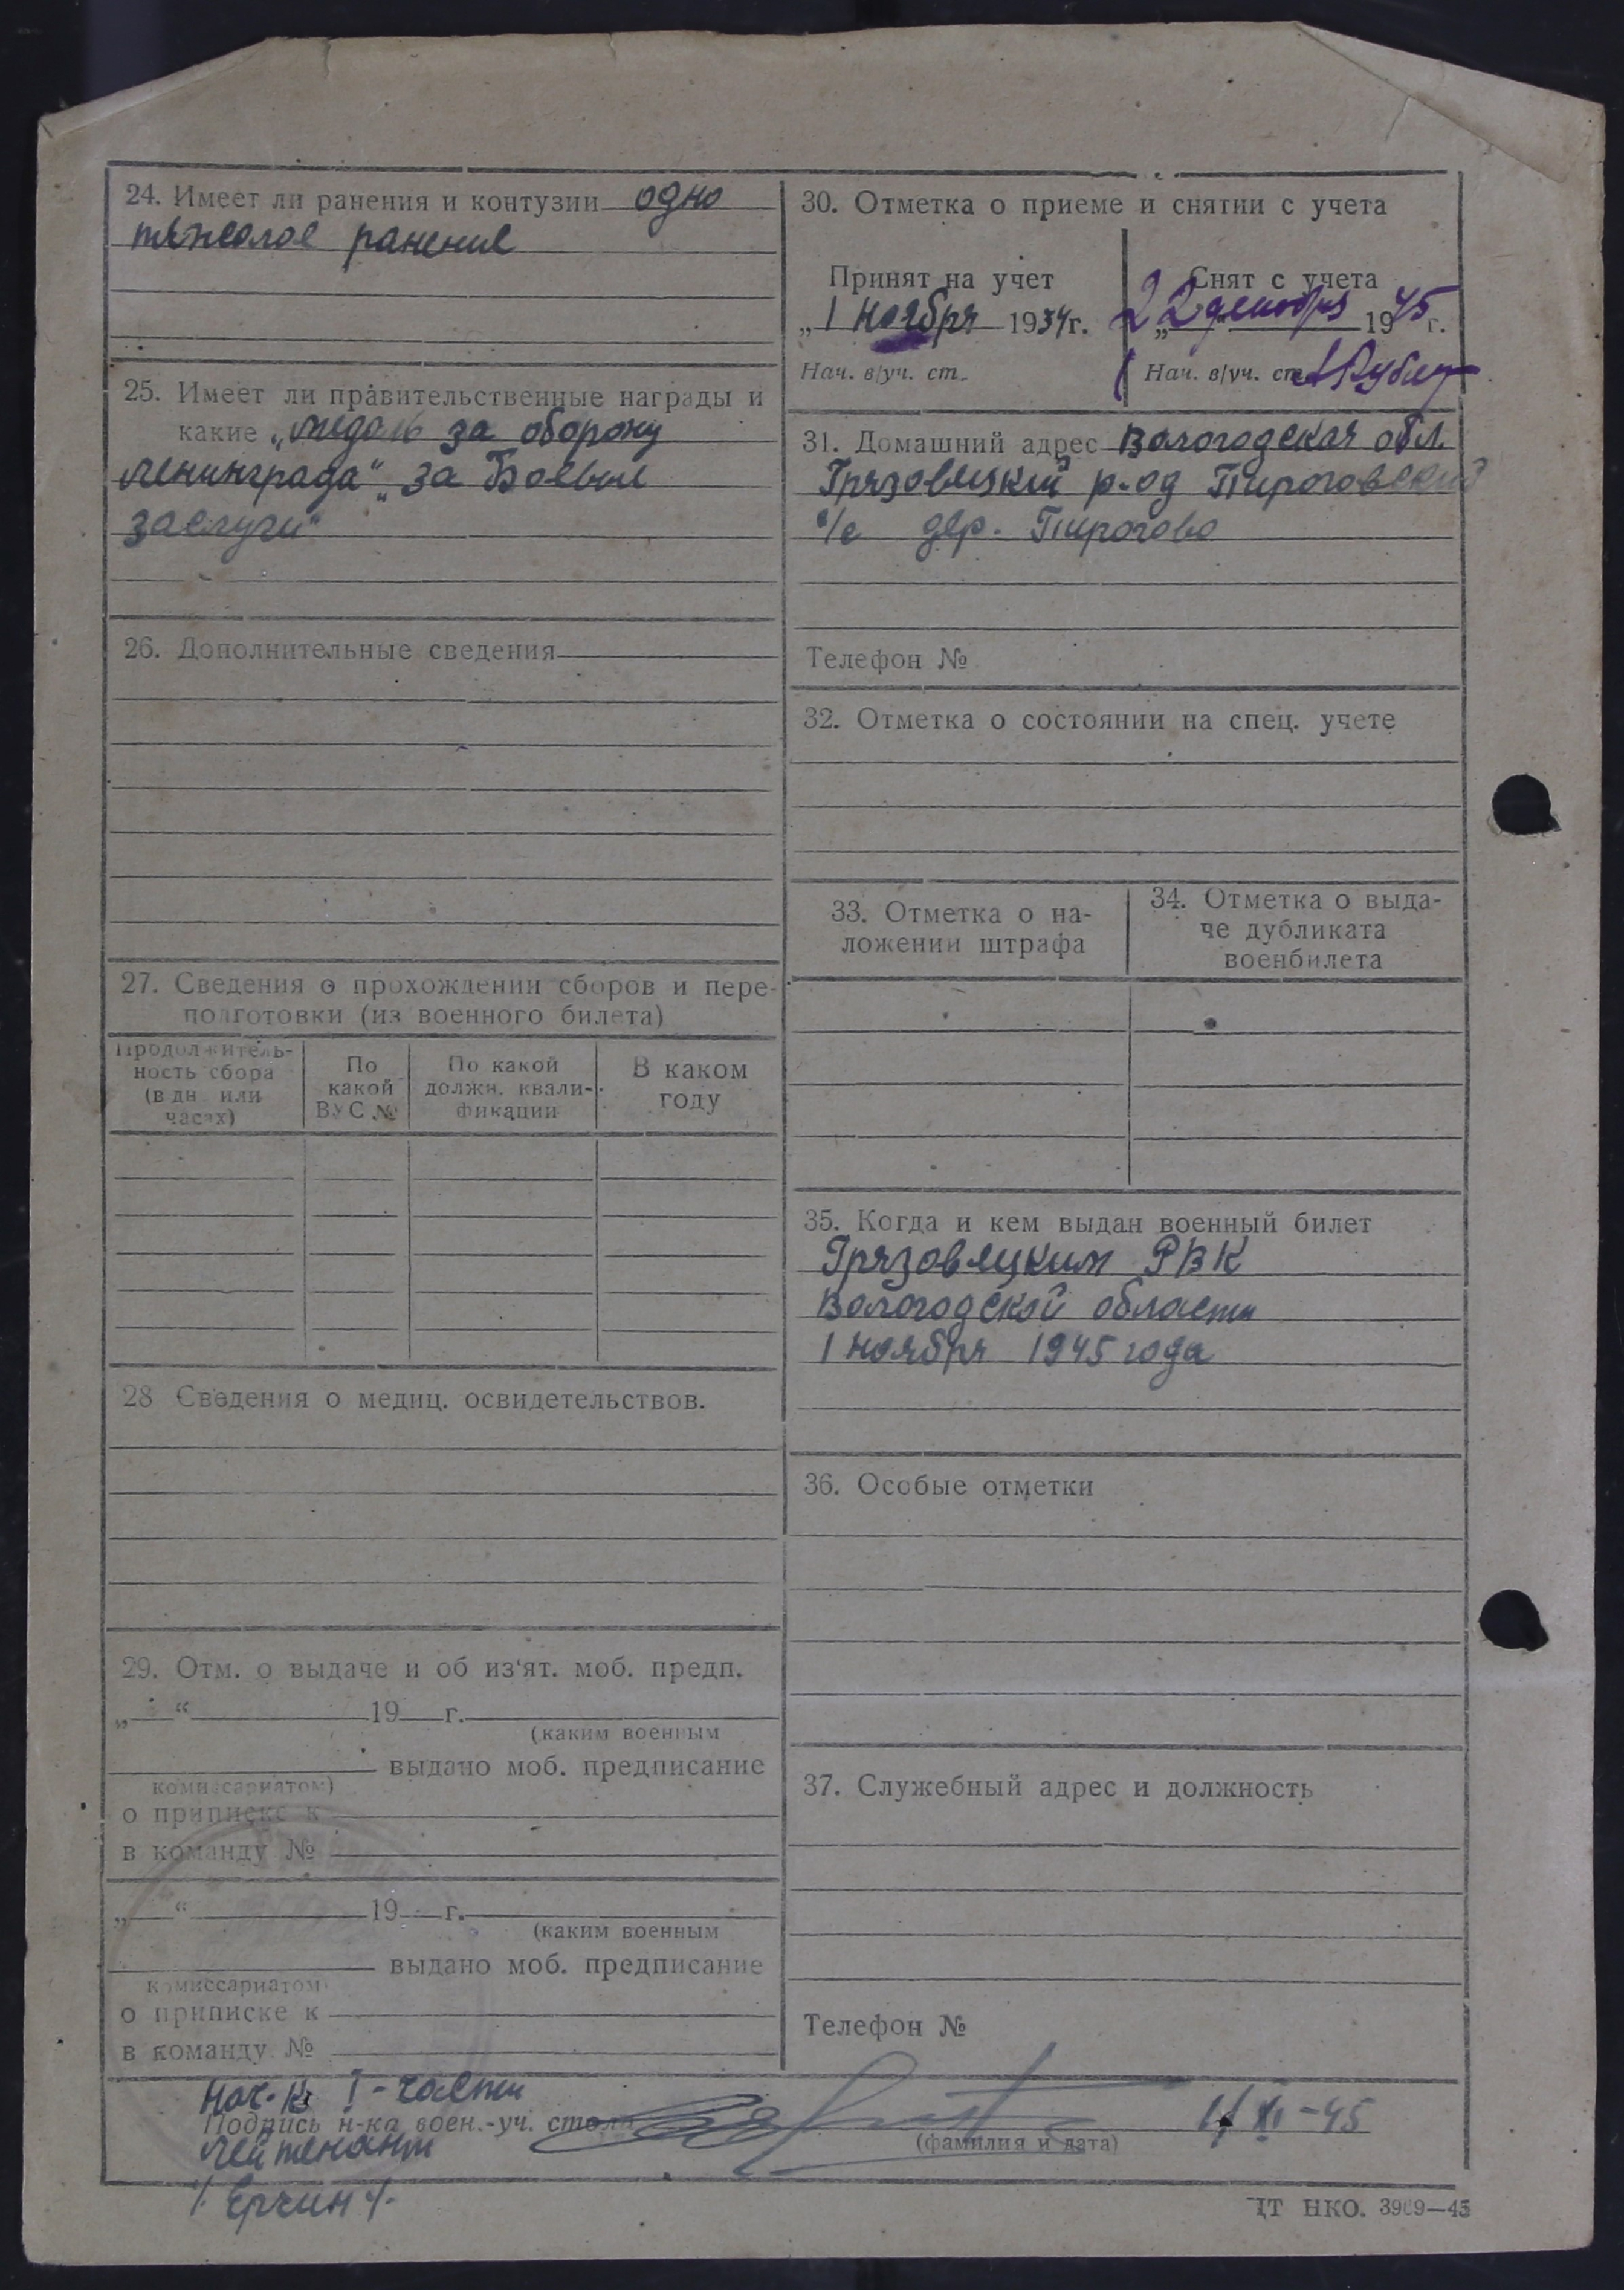 24. Имеет ли ранения и контузии одно
тяжелое ранение
25. Имеет ли правительственные награды и
какие „медаль за оборону
Ленинграда“ „за Боевые
заслуги“
26. Дополнительные сведения
27. Сведения о прохождении сборов и пере-
подготовки (из военного билета)
Продолжитель-
ность сбора
(в дн. или
часах)
По
какой
ВУС №
По какой
должн. квали-
фикации
В каком
году
28 Сведения о медиц. освидетельствов.
29. Отм. о выдаче и об из‘ят. моб. предп.
„ “ 19 г.
(каким военным
выдано моб. предписание
комиссариатом)
о приписке к
в команду №
„ “ 19 г.
(каким военным
выдано моб. предписание
комиссариатом)
о приписке к
в команду №
30. Отметка о приеме и снятии с учета
Принят на учет
„1 ноября 1934г.
Нач. в/уч. ст.
Снят с учета
22 декабря 1945 г.
Нач. в/уч. ст.
31. Домашний адрес Вологодская обл.
Грязовецкий р-од Пироговский
с/с дер. Пирогово
Телефон №
32. Отметка о состоянии на спец. учете
33. Отметка о на-
ложении штрафа
34. Отметка о выда-
че дубликата
военбилета
35. Когда и кем выдан военный билет
Грязовецким РВК
Вологодской области
1 ноября 1945 года
36. Особые отметки
37. Служебный адрес и должность
Телефон №
Нач-к I-части
Подпись н-ка воен.-уч. стола
(фамилия и дата)
XI-45
Лейтенант
/Ерчин/
ЦТ НКО. 3909—45